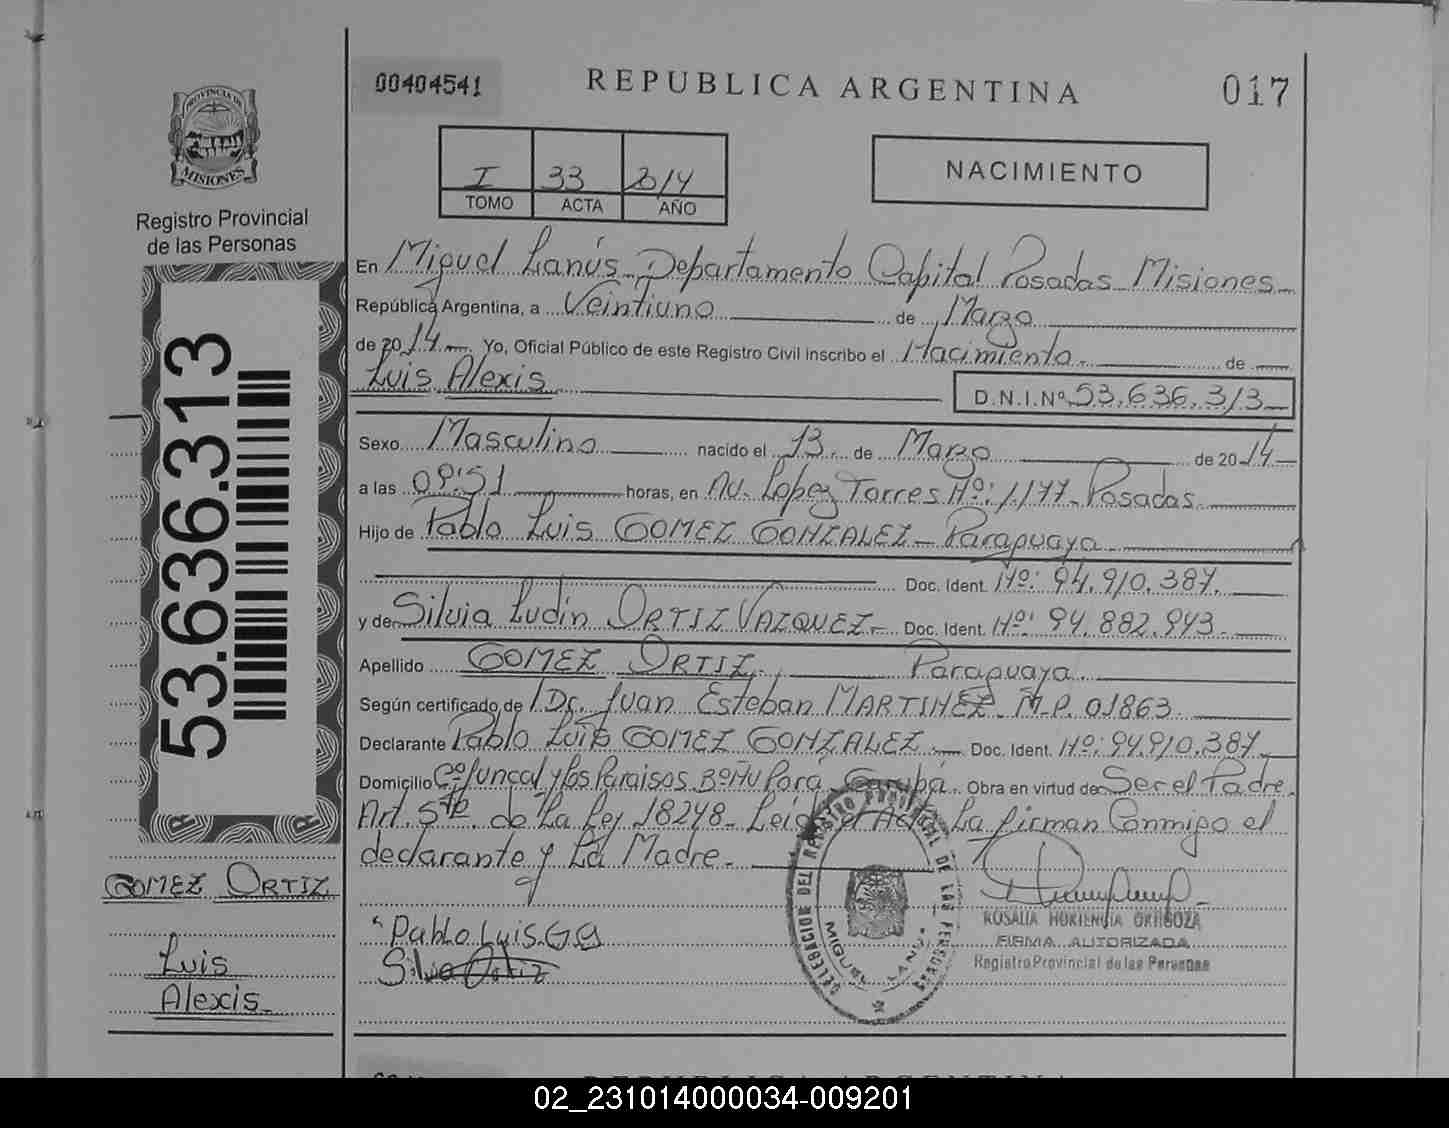 00404541
REPUBLICA ARGENTINA
017
PROVINCIA DE
MISIONES
Registro Provincial
de las Personas
I 33 2014
TOMO ACTA AÑO
NACIMIENTO
En Miguel Lanús Departamento Capital Posadas Misiones
República Argentina, a Veintiuno de Marzo
de 2014 Yo, Oficial Público de este Registro Civil inscribo el Nacimiento de
Luis Alexis
D.N.I.Nº 53.636.313
Sexo Masculino nacido el 13 de Marzo de 2014
a las horas, en Av. Lopez Torres Nº: 1.177 Posadas
Hijo de Pablo Luis GOMEZ GONZALEZ - Paraguaya
Doc. Ident. Nº: 94.910.387.
y de Silvia Ludin ORTIZ VAZQUEZ - Doc. Ident. Nº: 94.882.943.
Apellido GOMEZ ORTIZ. Paraguaya
Según certificado de Dr. Juan Esteban MARTINEZ M.P. 01863
Declarante Pablo Luis GOMEZ GONZALEZ Doc. Ident. Nº: 94.910.387
Domicilio Juncal y los Paraisos Bº Ñu Pora, Garupá. Obra en virtud de Ser el Padre.
Art. 5to. de La Ley 18248. Leída el Acta La firman Conmigo el
declarante y La Madre.
53.636.313
GOMEZ ORTIZ
Luis
Alexis
Pablo Luis G G
Silvia Ortiz
DELEGACION DEL REGISTRO PROVINCIAL DE LAS PERSONAS
MIGUEL LANUS
ROSALIA HORTENCIA ORTIGOZA
FIRMA AUTORIZADA
Registro Provincial de las Personas
REPUBLICA ARGENTINA
02_231014000034-009201